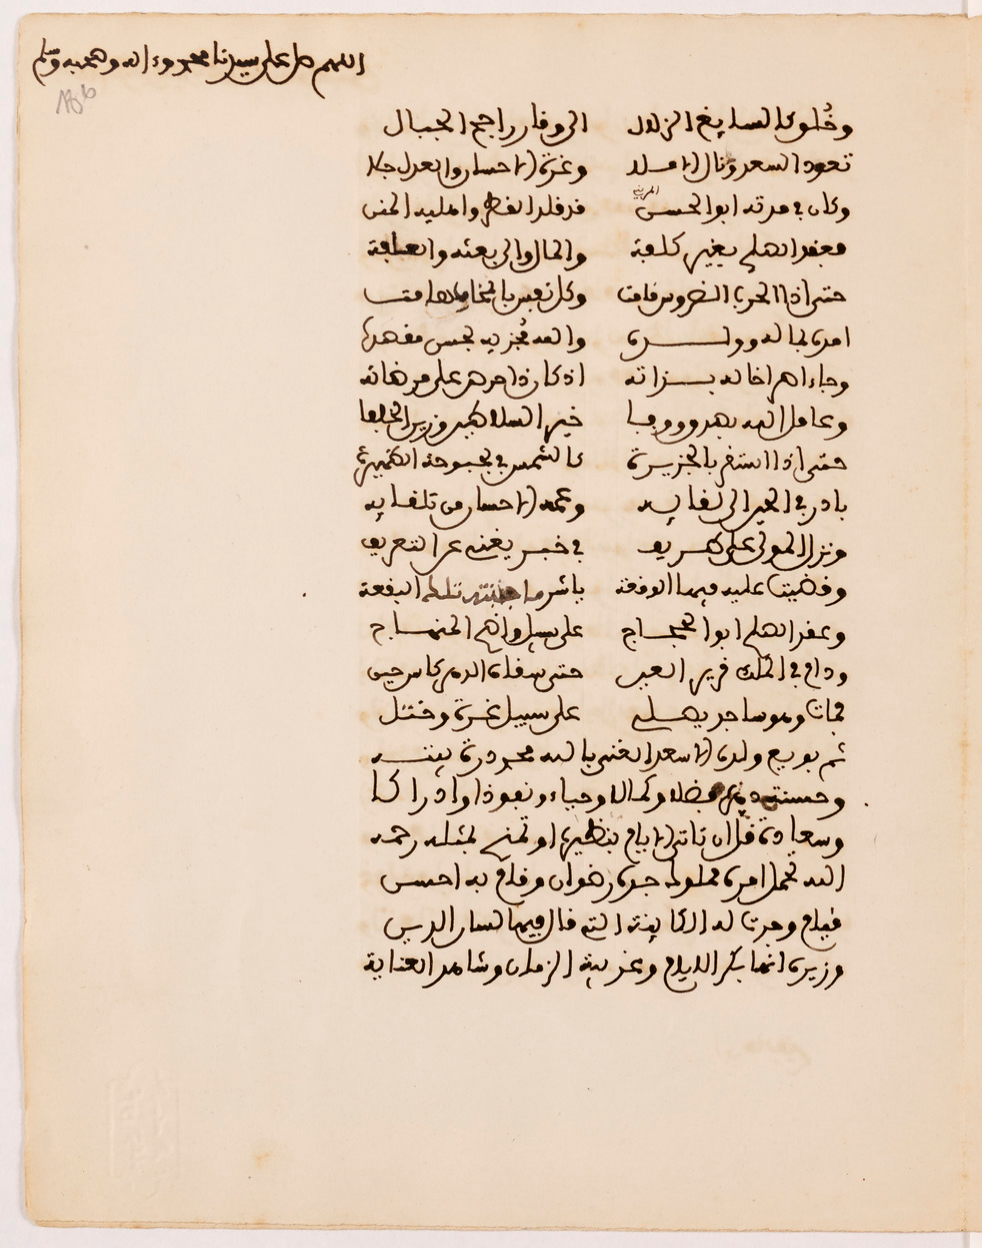 اللهم صل على سيدنا محمد وءاله وصحبه وسلم
وخلو كالسايغ الزلال الى وقار راجح الجبال
تعود السعد ونال الامله وغمرة الاحسان والعدل جلا
وكان في مدته ابو الحسن المريني قد قلد الفطر واهليه المنن
فعقد الصلح بغير كلفة والمال والى بعثه والعطفة
حتى اذا الحرب الضروس قامت وكل نفس بالمخاوف
امده بماله وولده والله مجزيه بحسن مقصده
وجاءهم اخاله بذاته اذ كان ذا حرص على مرضاته
وعامل الله بصدق ووفا خير السلاطين وزين الخلفا
حتى اذا استقر بالجزيرة كالشمس في بحبوحة الظهيرة
بادر في الحين الى لقايه وعمه الاحسان من تلقايه
ونزل المولى على طريف في خبر يغني عن التعريف
وقضيت عليه فيها الوقعة ياشر ما تلك البقعة
وعقد الصلح ابو الحجاج على سبيل واضح المنهاج
ودام في الملك قرير العين حتى سقاه الدهر كاس حين
فمات وهو ساجد يصلي على سبيل غرة وختل
ثم بويع ولده الاسعد الغني بالله محمد درة بيته
وحسنة فضلا وكمالا وحياء ونفوذا وادراكا
وسعادة قل ان تاتي الايام بنظيرها او تمنح بمثله رحمه
الله تحمل امره مملوك جده رضوان وقام به احسن
قيام وجرت له الكاينة التي قال فيها لسان الدين
وزيره انها بكر الايام وغريبة الزمان وشاهد العناية